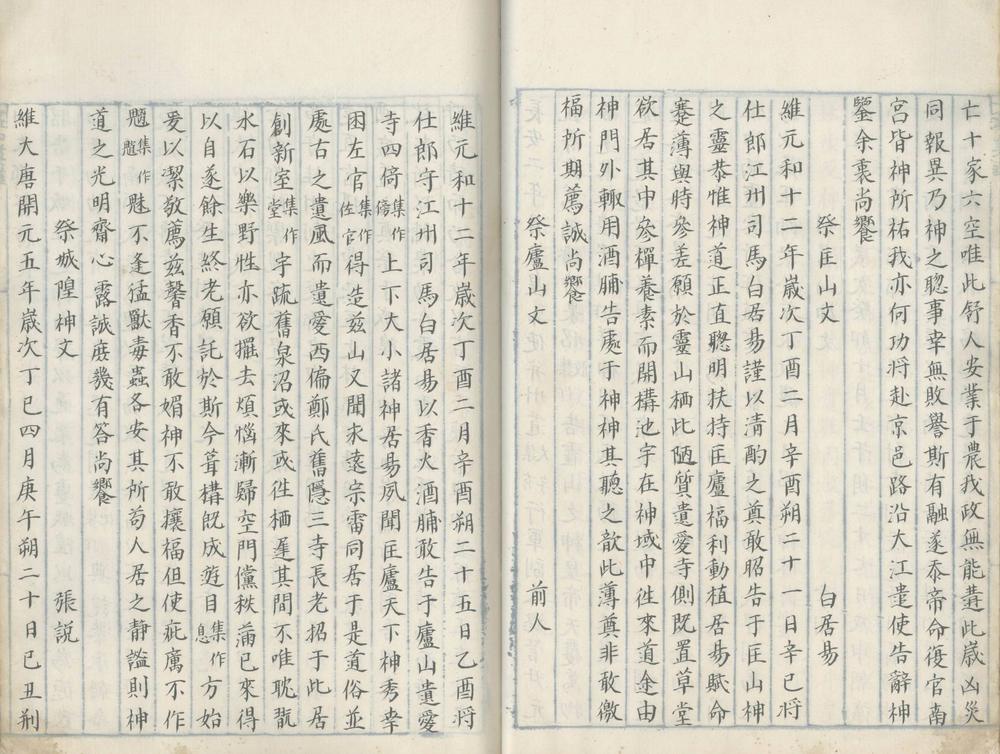 亡十家六空唯此舒人安業于農我政無能遘此歲凶災
同報異乃神之聰事幸無敗譽斯有融遂忝帝命復官南
宮皆神所祐我亦何功將赴京邑路沿大江遣使告辭神
鑒余衷尚饗
祭匡山文 白居易
維元和十二年歲次丁酉二月辛酉朔二十一日辛巳將
仕郎江州司馬白居易謹以清酌之奠敢昭告于匡山神
之靈恭惟神道正直聰明扶持匡廬福利動植居易賦命
蹇薄與時參差願於靈山栖此陋質遺愛寺側既置草堂
欲居其中參禪養素而開構池宇在神域中往來道途由
神門外輙用酒脯告處于神神其聽之歆此薄奠非敢徼
福所期薦誠尚饗
祭廬山文 前人
維元和十二年歲次丁酉二月辛酉朔二十五日乙酉將
仕郎守江州司馬白居易以香火酒脯敢告于廬山遺愛
寺四倚集作傍上下大小諸神居易夙聞匡廬天下神秀幸
因左官集作佐官得造兹山又聞永遠宗雷同居于是道俗並
處古之遺風而遺愛西偏鄭氏舊隱三寺長老招于此居
創新室集作堂宇疏舊泉沼或來或往栖遲其間不唯耽翫
水石以樂野性亦欲擺去煩惱漸歸空門儻秩滿已來得
以自遂餘生終老願託於斯今葺構既成遊目集作息方始
爰以潔敬薦兹馨香不敢媚神不敢攘福但使疵厲不作
魑集作魖魅不逢猛獸毒蟲各安其所苟人居之靜謐則神
道之光明齋心露誠庶幾有答尚饗
祭城隍神文 張説
維大唐開元五年歲次丁巳四月庚午朔二十日己丑荆